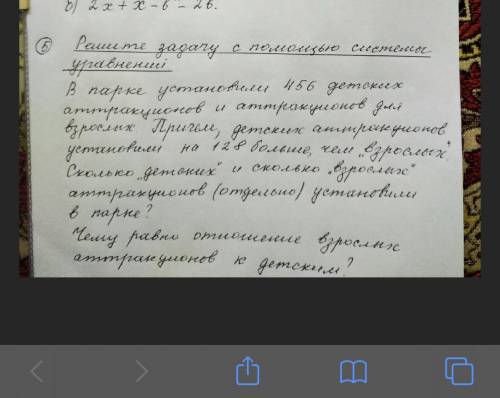 б) 2x + x - 6 = 26.
⑤ Решите задачу с помощью системы
уравнений
В парке установили 456 детских
аттракционов и аттракционов для
взрослых. Причем, детских аттракционов
установили на 128 больше, чем „взрослых".
Сколько „детских" и сколько „взрослых"
аттракционов (отдельно) установили
в парке?
Чему равно отношение взрослых
аттракционов к детским?